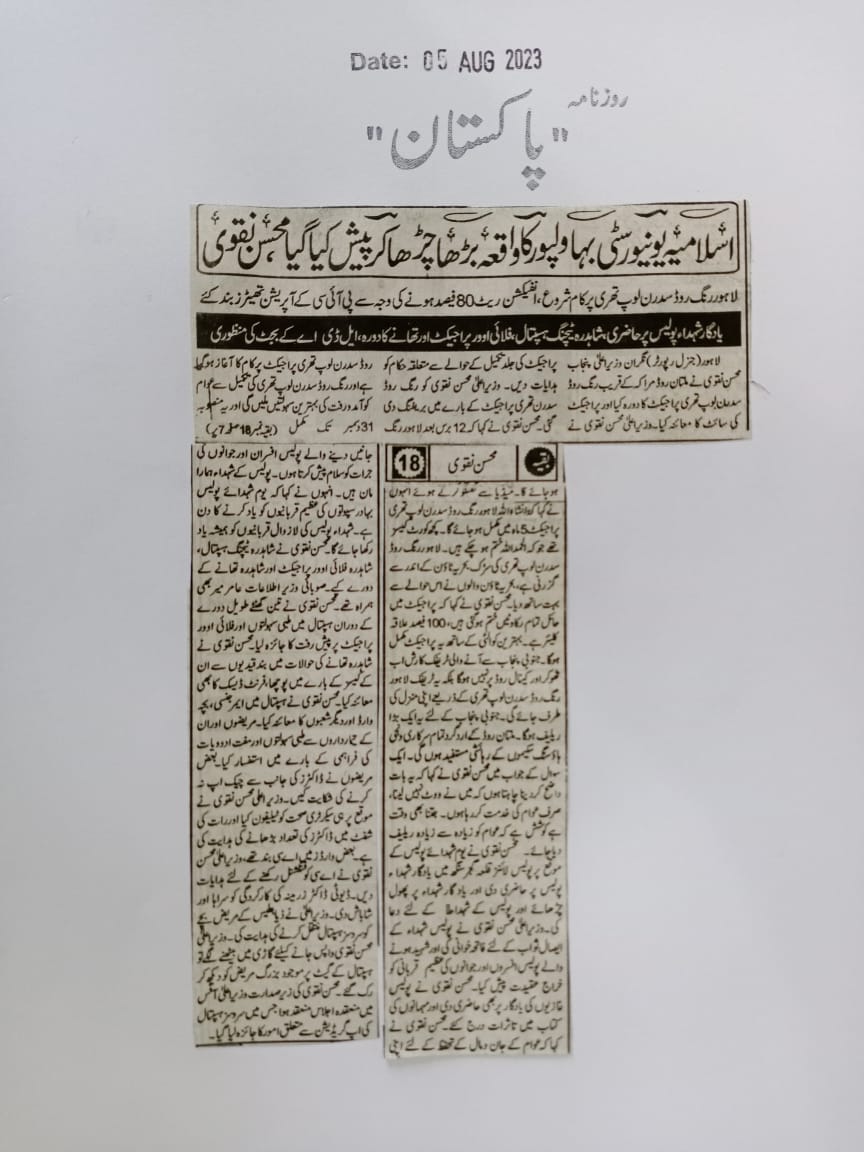 Date: 05 AUG 2023
روزنامہ
"پاکستان"
اسلامیہ یونیورسٹی بہاولپور کا واقعہ بڑھا چڑھا کر پیش کیا گیا محسن نقوی
لاہور رنگ روڈ سدرن لوپ تھری پر کام شروع، انفیکشن ریٹ 80 فیصد ہونے کی وجہ سے پی آئی سی کے آپریشن تھیٹرز بند کئے
یادگار شہداء پولیس پر حاضری، شاہدرہ ٹیچنگ ہسپتال، فلائی اوور پراجیکٹ اور تھانے کا دورہ، ایل ڈی اے کے بجٹ کی منظوری
لاہور (جنرل رپورٹر) نگران وزیراعلیٰ پنجاب
محسن نقوی نے ملتان روڈ مراکہ کے قریب رنگ روڈ
سدرن لوپ تھری پراجیکٹ کا دورہ کیا اور پراجیکٹ
کی سائٹ کا معائنہ کیا۔ وزیراعلیٰ محسن نقوی نے
پراجیکٹ کی جلد تکمیل کے حوالے سے متعلقہ حکام کو
ہدایات دیں۔ وزیراعلیٰ محسن نقوی کو رنگ روڈ
سدرن تھری پراجیکٹ کے بارے میں بریفنگ دی
گئی۔ محسن نقوی نے کہا کہ 12 برس بعد لاہور رنگ
روڈ سدرن لوپ تھری پراجیکٹ پر کام کا آغاز ہو گیا
ہے اور رنگ روڈ سدرن لوپ تھری کی تکمیل سے عوام
کو آمد و رفت کی بہترین سہولتیں ملیں گی اور یہ منصوبہ
31 دسمبر تک مکمل (بقیہ نمبر 18 صفحہ 7 پر)
بقیہ محسن نقوی 18
ہو جائے گا۔ میڈیا سے گفتگو کرتے ہوئے انہوں
نے کہا کہ انشاء اللہ لاہور رنگ روڈ سدرن لوپ تھری
پراجیکٹ 5 ماہ میں مکمل ہو جائے گا۔ کچھ کورٹ کیسز
تھے جو کہ الحمد للہ ختم ہو چکے ہیں۔ لاہور رنگ روڈ
سدرن لوپ تھری کی سڑک بحریہ ٹاؤن کے اندر سے
گزرنی ہے، بحریہ ٹاؤن والوں نے اس حوالے سے
بہت ساتھ دیا۔ محسن نقوی نے کہا کہ پراجیکٹ میں
حائل تمام رکاوٹیں ختم ہو گئی ہیں، 100 فیصد علاقہ
کلیئر ہے۔ بہترین کوالٹی کے ساتھ یہ پراجیکٹ مکمل
ہوگا۔ جنوبی پنجاب سے آنے والی ٹریفک کا رش اب
ٹھوکر اور کینال روڈ پر نہیں ہوگا بلکہ یہ ٹریفک لاہور
رنگ روڈ سدرن لوپ تھری کے ذریعے اپنی منزل کی
طرف جائے گی۔ جنوبی پنجاب کے لئے یہ ایک بڑا
ریلیف ہوگا۔ ملتان روڈ کے اردگرد تمام سرکاری و نجی
ہاؤسنگ سکیموں کے رہائشی مستفید ہوں گے۔ ایک
سوال کے جواب میں محسن نقوی نے کہا کہ یہ بات
واضح کر دینا چاہتا ہوں کہ میں نے ووٹ نہیں لینا،
صرف عوام کی خدمت کر رہا ہوں۔ جتنا بھی وقت
ہے کوشش ہے کہ عوام کو زیادہ سے زیادہ ریلیف
دیا جائے۔ محسن نقوی نے یوم شہدائے پولیس کے
موقع پر پولیس لائنز قلعہ گجر سنگھ میں یادگار شہداء
پولیس پر حاضری دی اور یادگار شہداء پر پھول
چڑھائے اور پولیس کے شہداء کے لئے دعا
کی۔ وزیراعلیٰ محسن نقوی نے پولیس شہداء کے
ایصال ثواب کے لئے فاتحہ خوانی کی اور شہید ہونے
والے پولیس افسروں اور جوانوں کی عظیم قربانی کو
خراج عقیدت پیش کیا۔ محسن نقوی نے پولیس
غازیوں کی یادگار پر بھی حاضری دی اور مہمانوں کی
کتاب میں تاثرات درج کئے۔ محسن نقوی نے
کہا کہ عوام کے جان و مال کے تحفظ کے لئے اپنی
جانیں دینے والے پولیس افسران اور جوانوں کی
جرات کو سلام پیش کرتا ہوں۔ پولیس کے شہداء ہمارا
مان ہیں۔ انہوں نے کہا کہ یوم شہدائے پولیس
بہادر سپوتوں کی عظیم قربانیوں کو یاد کرنے کا دن
ہے۔ شہداء پولیس کی لازوال قربانیوں کو ہمیشہ یاد
رکھا جائے گا۔ محسن نقوی نے شاہدرہ ٹیچنگ ہسپتال،
شاہدرہ فلائی اوور پراجیکٹ اور شاہدرہ تھانے کے
دورے کیے۔ صوبائی وزیر اطلاعات عامر میر بھی
ہمراہ تھے۔ محسن نقوی نے تین گھنٹے طویل دورے
کے دوران ہسپتال میں طبی سہولتوں اور فلائی اوور
پراجیکٹ پر پیش رفت کا جائزہ لیا۔ محسن نقوی نے
شاہدرہ تھانے کی حوالات میں بند قیدیوں سے ان
کے کیسز کے بارے میں پوچھا، فرنٹ ڈیسک کا بھی
معائنہ کیا۔ محسن نقوی نے ہسپتال میں ایمرجنسی، بچہ
وارڈ اور دیگر شعبوں کا معائنہ کیا۔ مریضوں اور ان
کے تیمارداروں سے طبی سہولتوں اور مفت ادویات
کی فراہمی کے بارے میں استفسار کیا۔ بعض
مریضوں نے ڈاکٹرز کی جانب سے چیک اپ نہ
کرنے کی شکایت کیں۔ وزیراعلیٰ محسن نقوی نے
موقع پر ہی سیکرٹری صحت کو ٹیلیفون کیا اور رات کی
شفٹ میں ڈاکٹرز کی تعداد بڑھانے کی ہدایت کی
ہے۔ بعض وارڈز میں اے سی بند تھے، وزیراعلیٰ محسن
نقوی نے اے سی کو فنکشنل رکھنے کے لئے ہدایات
دیں۔ ڈیوٹی ڈاکٹر زرمینہ کی کارکردگی کو سراہا اور
شاباش دی۔ وزیراعلیٰ نے ڈائیلیسز کے مریض بچے
کو سروسز ہسپتال منتقل کرنے کی ہدایت کی۔ وزیراعلیٰ
محسن نقوی واپس جانے کیلئے گاڑی میں بیٹھنے لگے تو
ہسپتال کے گیٹ پر موجود بزرگ مریض کو دیکھ کر
رک گئے۔ محسن نقوی کی زیر صدارت وزیراعلیٰ آفس
میں منعقدہ اجلاس منعقد ہوا جس میں سروسز ہسپتال
کی اپ گریڈیشن سے متعلق امور کا جائزہ لیا گیا۔